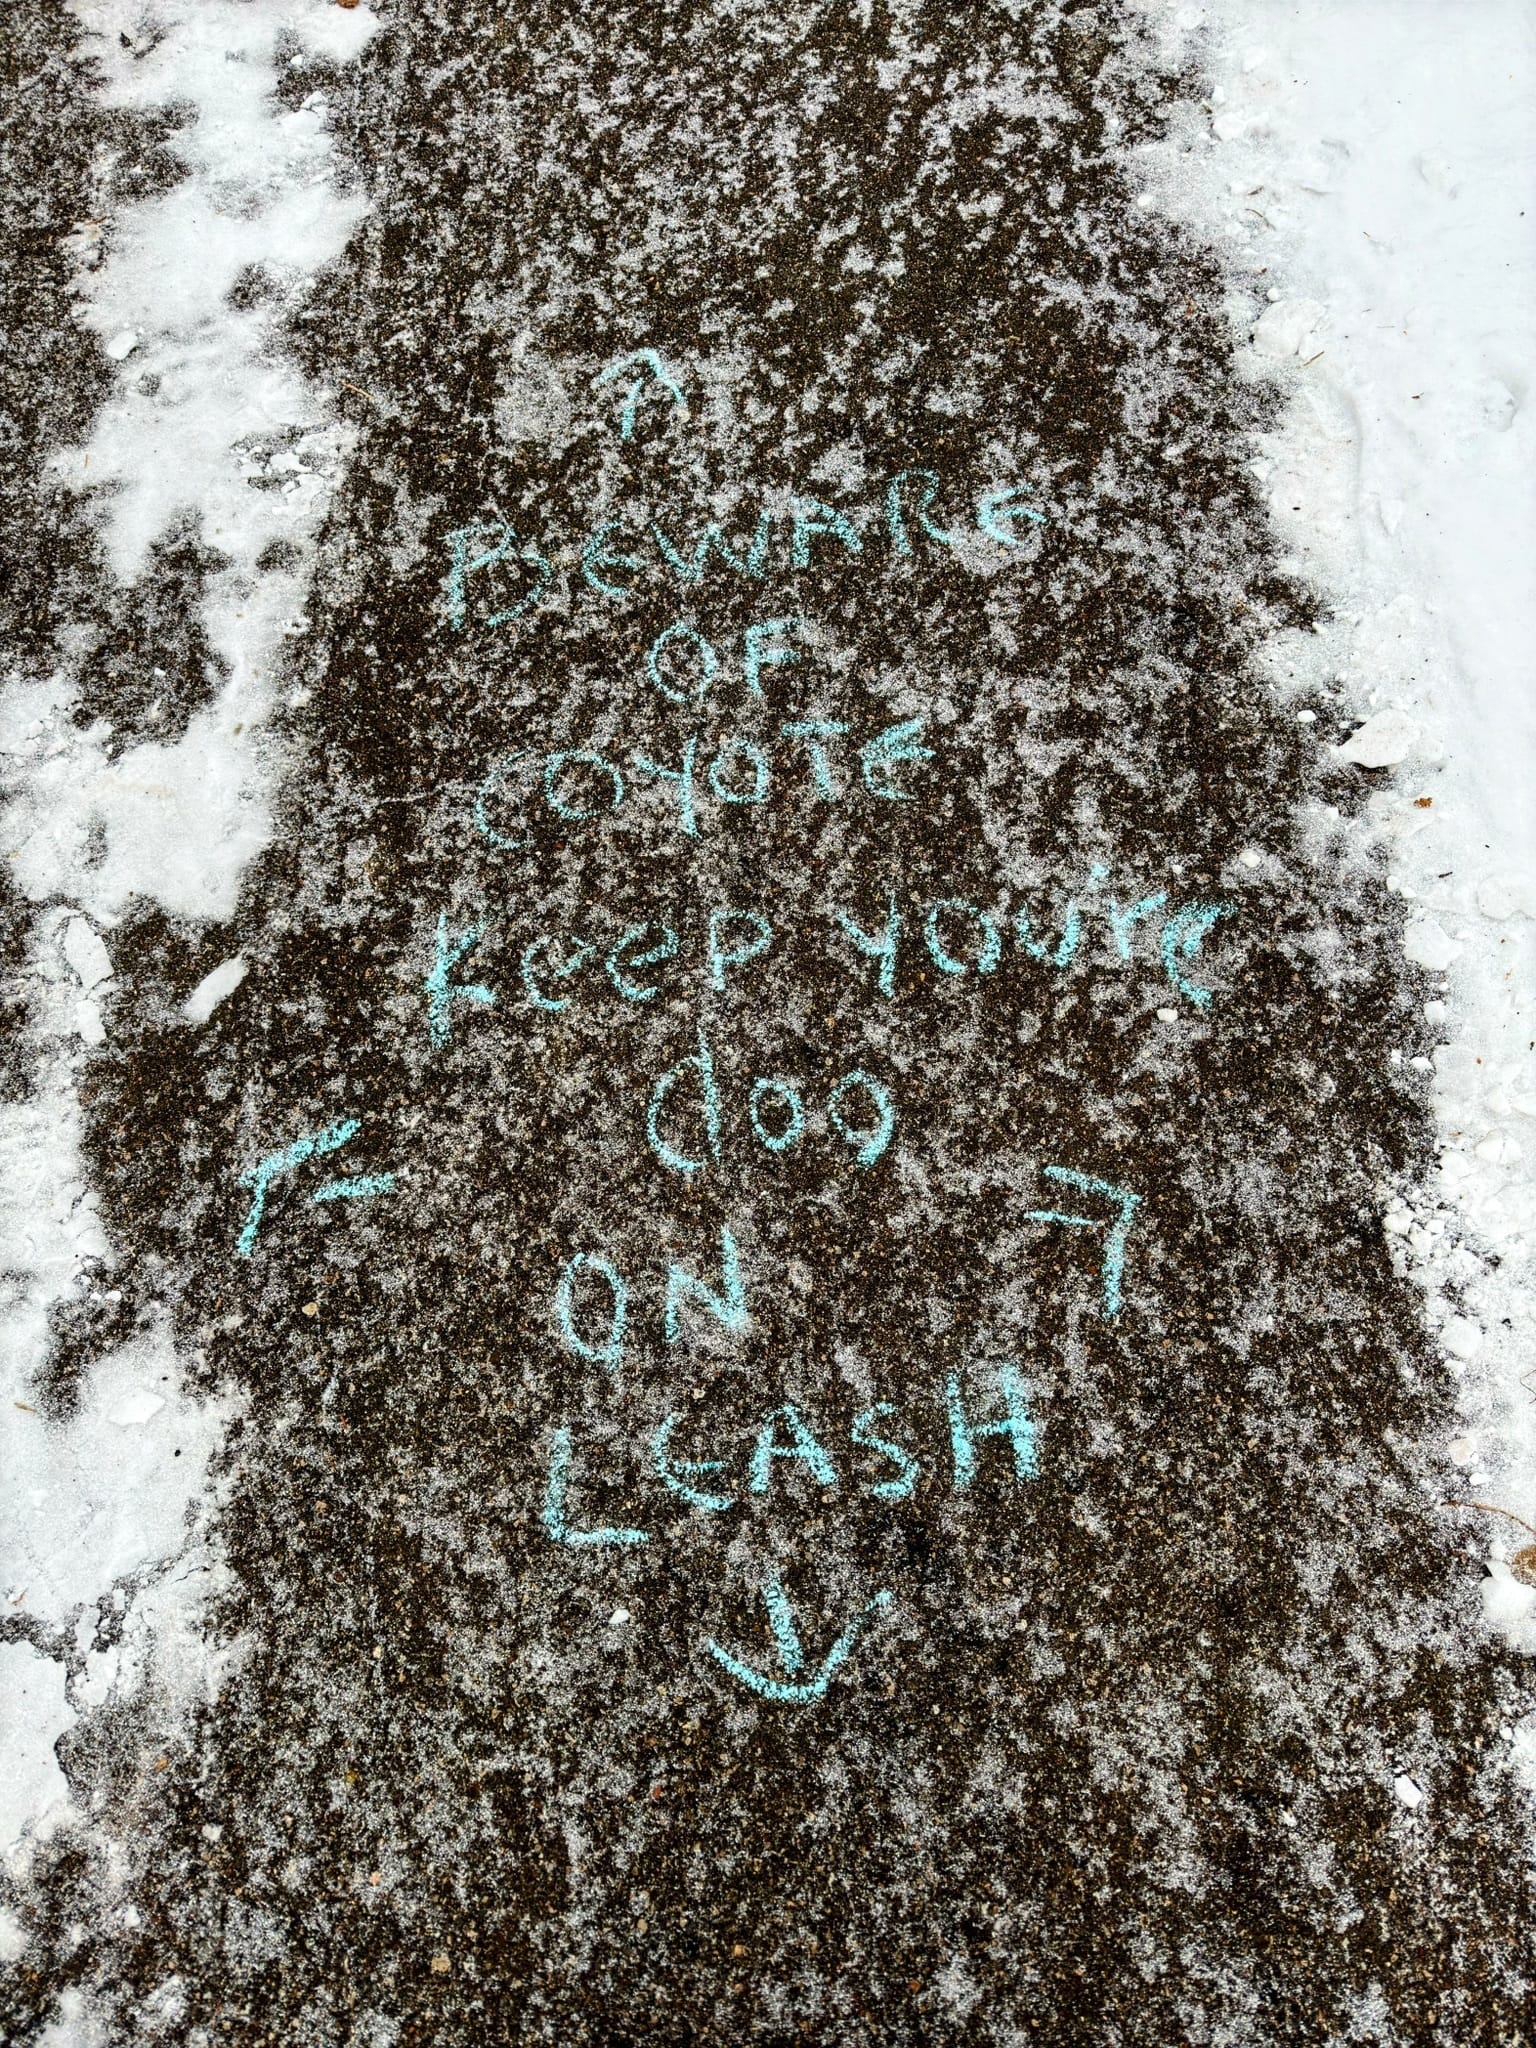 BEWARE
OF
COYOTE
Keep you're
dog
ON
LEASH